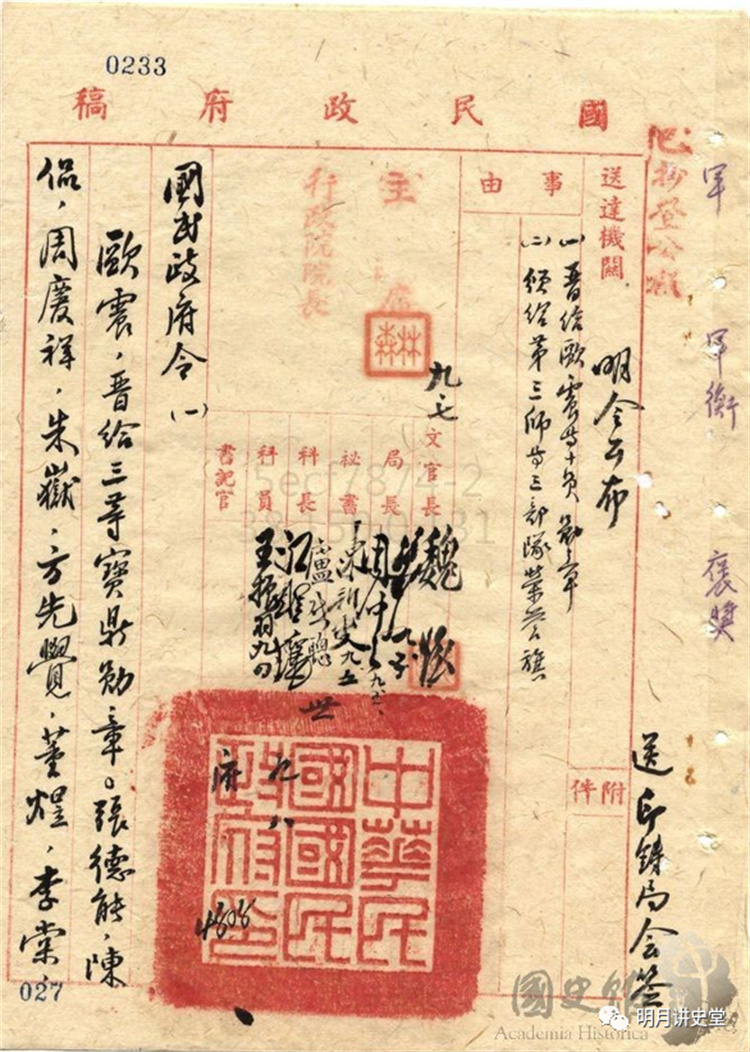 0233
國民政府稿
已抄登公報
軍
軍衡
褒獎
送達機關
明令公布
送印鑄局會簽
附件
事由
(一)晉給歐震等十員勛章
(二)頒給第三師等三部隊榮譽旗
主席
行政院院長
林森
九.七
文官長
局長
祕書
科長
科員
書記官
魏
周仲
九.五
王振羽九.四
中華民國國民政府印
九八
府
國民政府令(一)
歐震,晉給三等寶鼎勛章。張德能,陳
侃,周慶祥,朱嶽,方先覺,董煜,李棠,
027
5ecf7874-2
國史館
Academia Historica
明月讲史堂